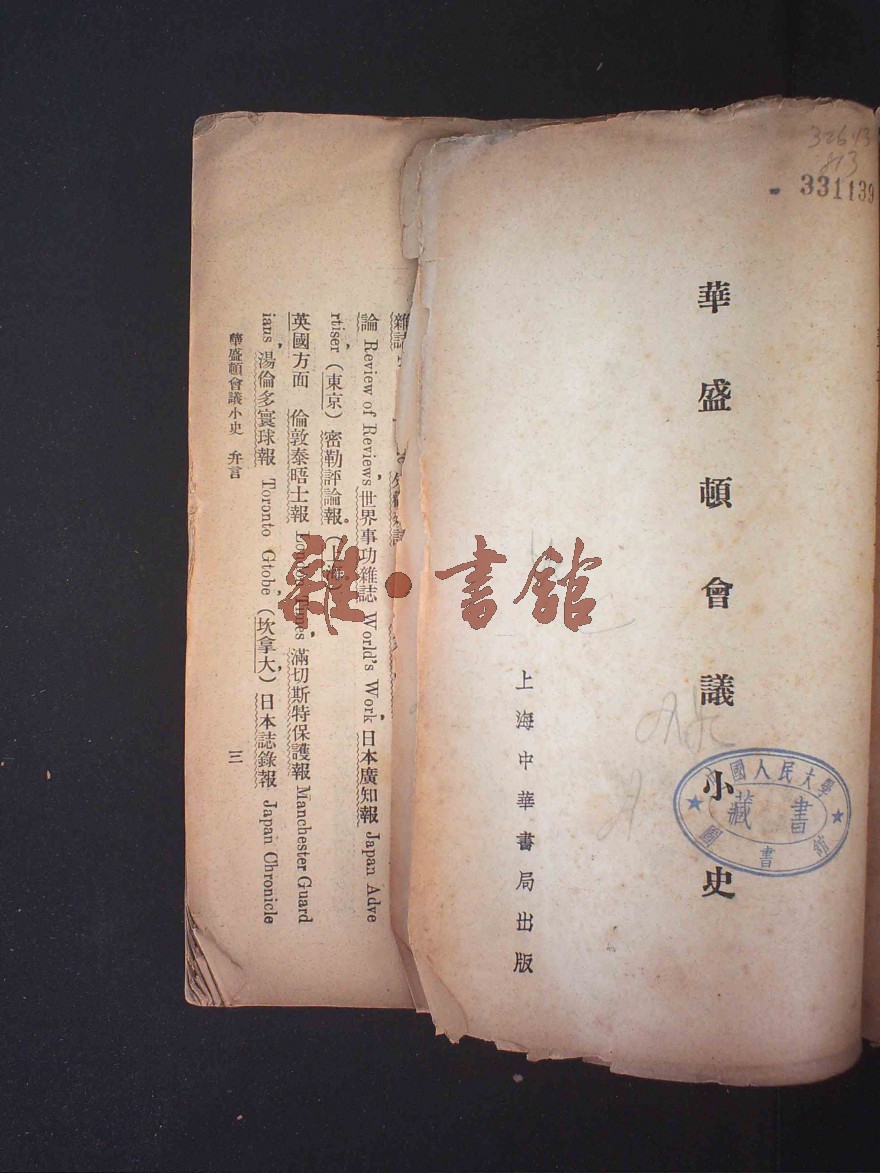 331139
華盛頓會議小史
上海中華書局出版
中國人民大學
藏書
圖書館
雜·書館
雜誌
論 Review of Reviews, 世界事功雜誌 World's Work, 日本廣知報 Japan Adve
rtiser, (東京) 密勒評論報。(上海)
英國方面 倫敦泰晤士報 London Times, 滿切斯特保護報 Manchester Guard
ians, 湯倫多寰球報 Toronto Gtobe, (坎拿大), 日本誌錄報 Japan Chronicle
華盛頓會議小史 弁言
三